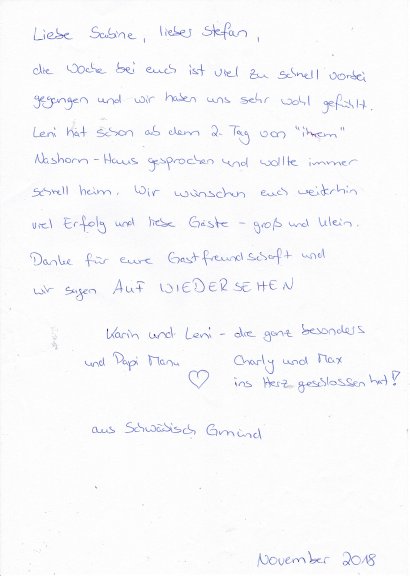 Liebe Sabine, lieber Stefan,
die Woche bei euch ist viel zu schnell vorbei
gegangen und wir haben uns sehr wohl gefühlt.
Leni hat schon ab dem 2. Tag von "ihrem"
Nashorn-Haus gesprochen und wollte immer
schnell heim. Wir wünschen euch weiterhin
viel Erfolg und liebe Gäste - groß und klein.
Danke für eure Gastfreundschaft und
wir sagen AUF WIEDERSEHEN
Karin und Leni - die ganz besonders
und Papi Manu Charly und Max
ins Herz geschlossen hat!
aus Schwäbisch Gmünd
November 2018